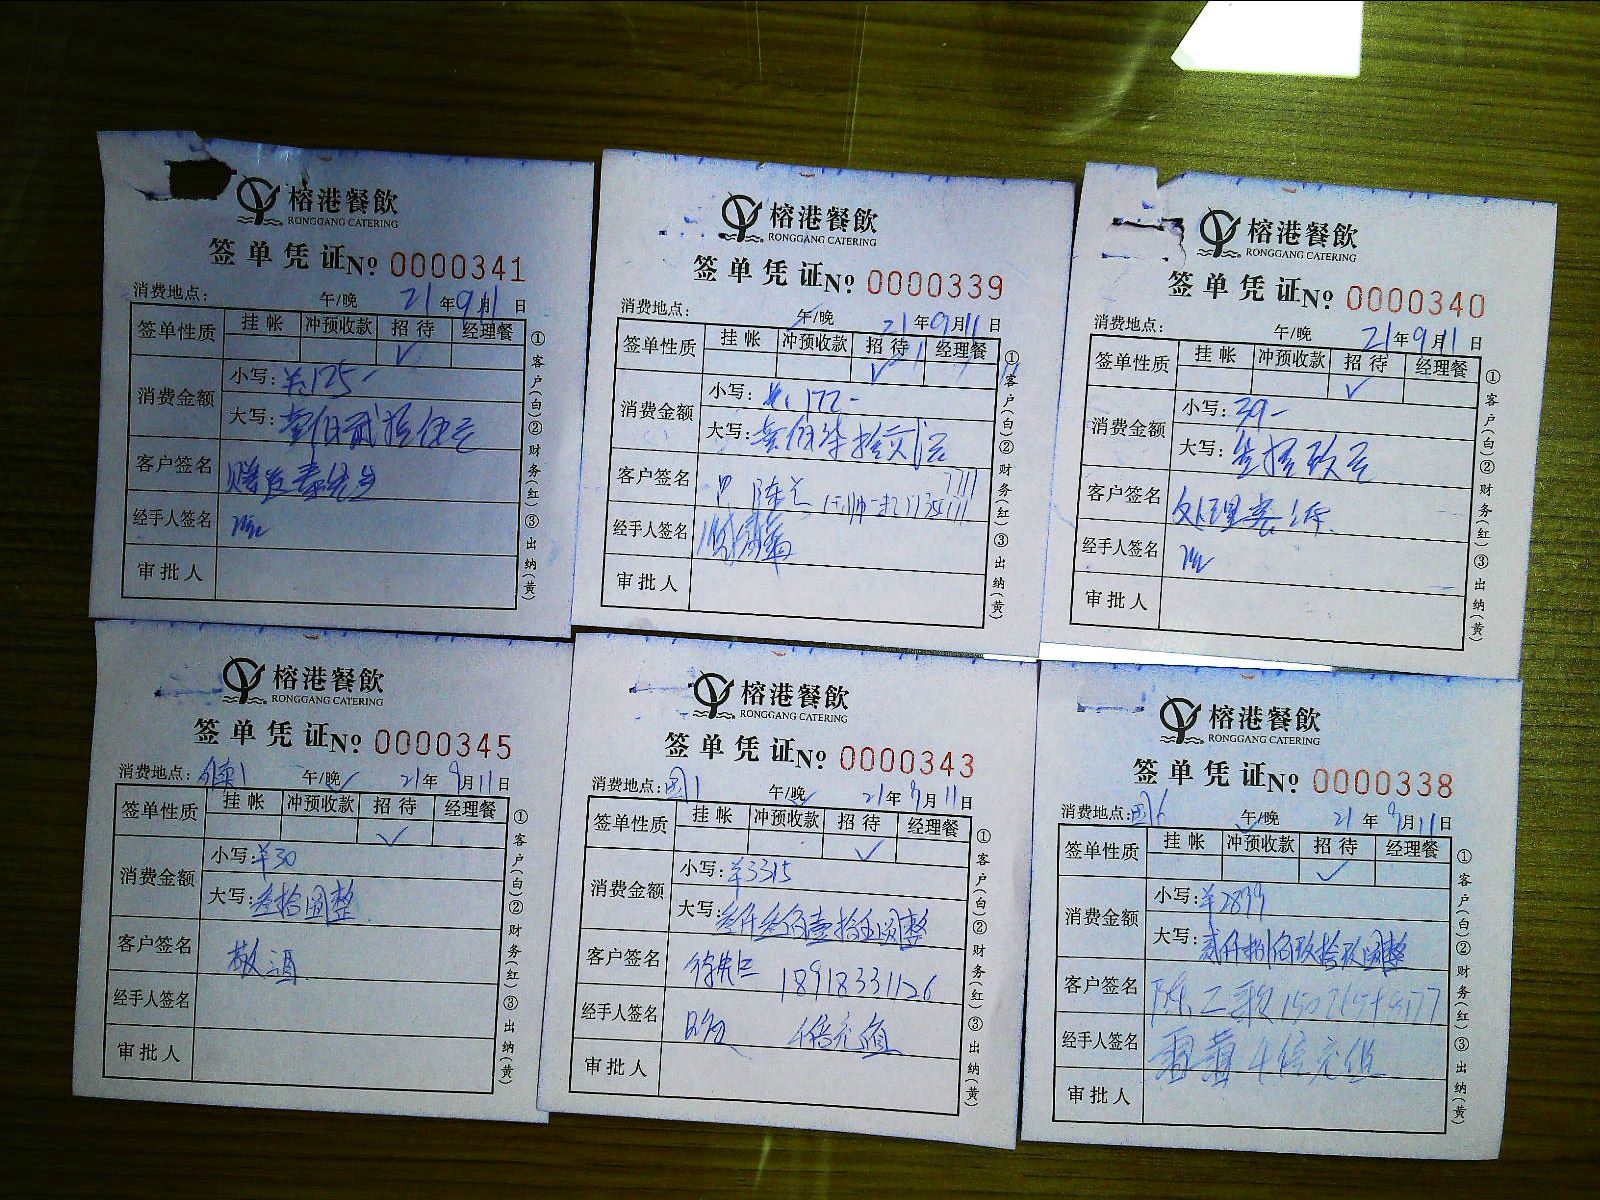 榕港餐飲
RONGGANG CATERING
签单凭证No 0000341
消费地点： 午/晚 21年9月11日
签单性质 挂帐 冲预收款 招待 经理餐
✓
消费金额 小写：¥125-
大写：壹佰贰拾伍元
客户签名
经手人签名
审批人
①客户(白)②财务(红)③出纳(黄)
榕港餐飲
RONGGANG CATERING
签单凭证No 0000339
消费地点： 午/晚 21年9月11日
签单性质 挂帐 冲预收款 招待 经理餐
✓
消费金额 小写：¥172-
大写：壹佰柒拾贰元
客户签名
经手人签名
审批人
①客户(白)②财务(红)③出纳(黄)
榕港餐飲
RONGGANG CATERING
签单凭证No 0000340
消费地点： 午/晚 21年9月11日
签单性质 挂帐 冲预收款 招待 经理餐
✓
消费金额 小写：39-
大写：叁拾玖元
客户签名 处理
经手人签名
审批人
①客户(白)②财务(红)③出纳(黄)
榕港餐飲
RONGGANG CATERING
签单凭证No 0000345
消费地点： 午/晚✓ 21年9月11日
签单性质 挂帐 冲预收款 招待 经理餐
✓
消费金额 小写：¥30
大写：叁拾圆整
客户签名 敬酒
经手人签名
审批人
①客户(白)②财务(红)③出纳(黄)
榕港餐飲
RONGGANG CATERING
签单凭证No 0000343
消费地点： 午/晚✓ 21年9月11日
签单性质 挂帐 冲预收款 招待 经理餐
✓
消费金额 小写：¥3315
大写：叁仟叁佰壹拾伍圆整
客户签名 18918331126
经手人签名 4倍充值
审批人
①客户(白)②财务(红)③出纳(黄)
榕港餐飲
RONGGANG CATERING
签单凭证No 0000338
消费地点： 午/晚 21年9月11日
签单性质 挂帐 冲预收款 招待 经理餐
✓
消费金额 小写：¥2899
大写：贰仟捌佰玖拾玖圆整
客户签名
经手人签名 4倍充值
审批人
①客户(白)②财务(红)③出纳(黄)